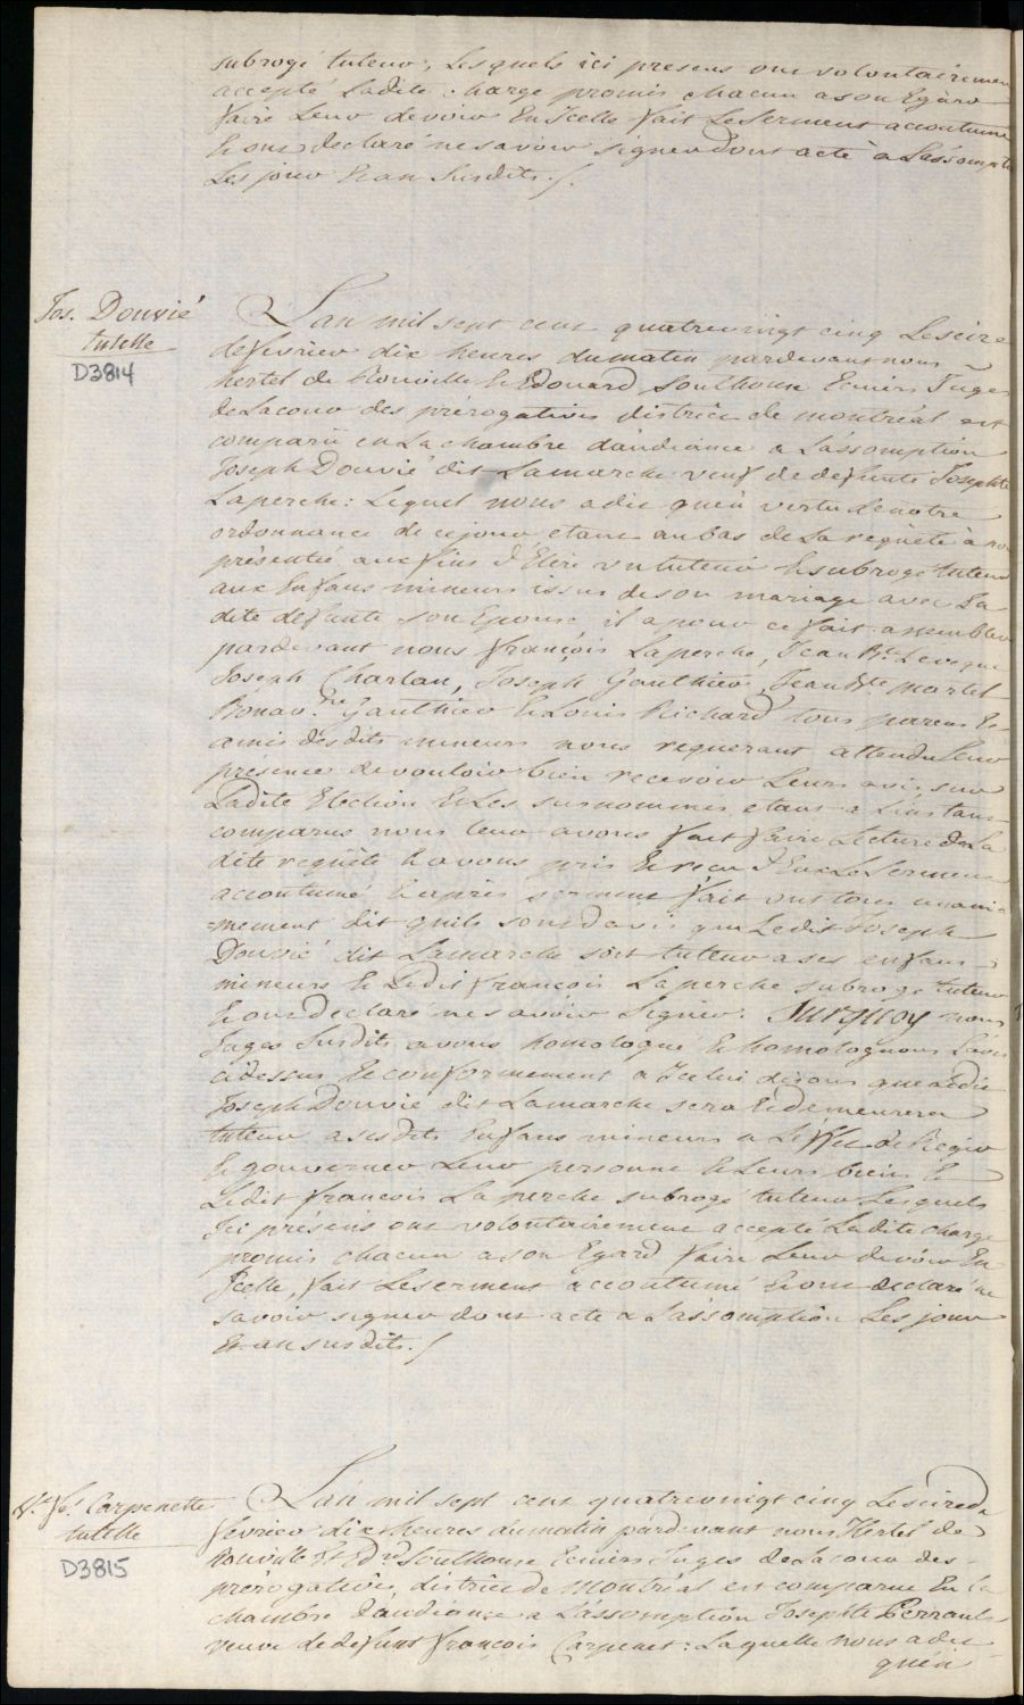 subrogé tuteur, Lesquels ici presens ont volontairemen
accepté Ladite charge promis chacun a son Egard
faire Leur devoir En Icelle fait Le Serment accoutumé
Et ont declaré ne savoir signer dont acte a Lassompti
Les jour Et an Susdits ./.
Jos. Douvié
tutelle
D3814
Lan mil sept cent quatrevingt cinq Le seize
de fevrier dix heures du matin pardevant nous
hertel de Rouville Et Edouard Southouse Ecuiers Juges
de La cour des prérogatives district de montréal est
comparu en La chambre daudiance a Lassomption
Joseph Douvié dit Lamarche veuf de defunte Josephte
Laperche: Lequel nous a dit quen vertu de notre
ordonnance de ce jour etant au bas de La requête à no
présentée aux fins d'Elire un tuteur Et subrogé tuteur
aux Enfans mineurs issus de son mariage avec La
dite defunte son Epouse il a pour ce fait assembler
pardevant nous françois Laperche, Jean Bte Leveque
Joseph Charlan, Joseph Gaulthier, Jean Bte martel
Bonav.re Gaulthier Et Louis Richard tous parens Et
amis desdits mineurs nous requerant attendu Leur
presence de vouloir bien recevoir Leurs avis sur
Ladite Election Et Les surnommes etant a Linstant
comparus nous leur avons fait faire Lecture de La
dite requête Et avons pris Et recu d'Eux Le Serment
accoutumé Et après serment fait ont tous unani
=mement dit quils sont davis que Ledit Joseph
Douvié dit Lamarche soit tuteur a ses enfans
mineurs Et Ledit françois Laperche subrogé tuteur
Et ont declaré ne savoir Signer. Surquoy nous
Juges Susdits avons homologué Et homologuons Lavis
cidessus Et conformement a Icelui disons que Ledit
Joseph Douvié dit Lamarche sera Et demeurera
tuteur a sesdits Enfans mineurs a Leffet de Regir
Et gouverner Leur personne Et Leurs biens Et
Ledit francois Laperche subrogé tuteur Lesquels
Ici présens ont volontairement accepté Ladite charge
promis chacun a son Egard faire Leur devoir En
Icelle, fait Le serment accoutumé Et ont declaré ne
savoir signer dont acte a Lassomption Les jour
Et an susdits ./
Ve fs Carpenette
tutelle
D3815
Lan mil sept cent quatrevingt cinq Le seize de
fevrier dix heures du matin pardevant nous Hertel de
Rouville Et Edrd Southouse Ecuiers Juges de La cour des
prérogatives, district de Montréal est comparue En la
chambre daudiance a Lassomption Josephte Perrault
veuve de defunt françois Carpenet: Laquelle nous a dit
quen